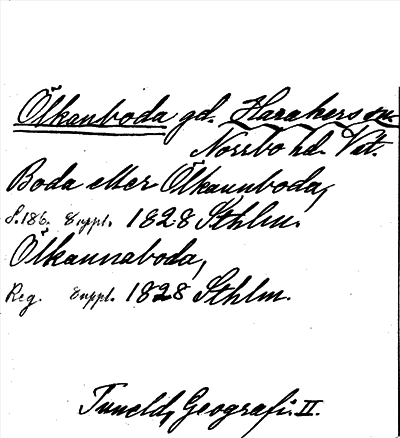 Ölkanboda gd. Harakers sn.
Norrbo hd. Vst.
Boda eller Ölkannboda,
S. 186. Suppl. 1828 Sthlm.
Ölkannaboda,
Reg. Suppl. 1828 Sthlm.
Tuneld, Geografi. II.